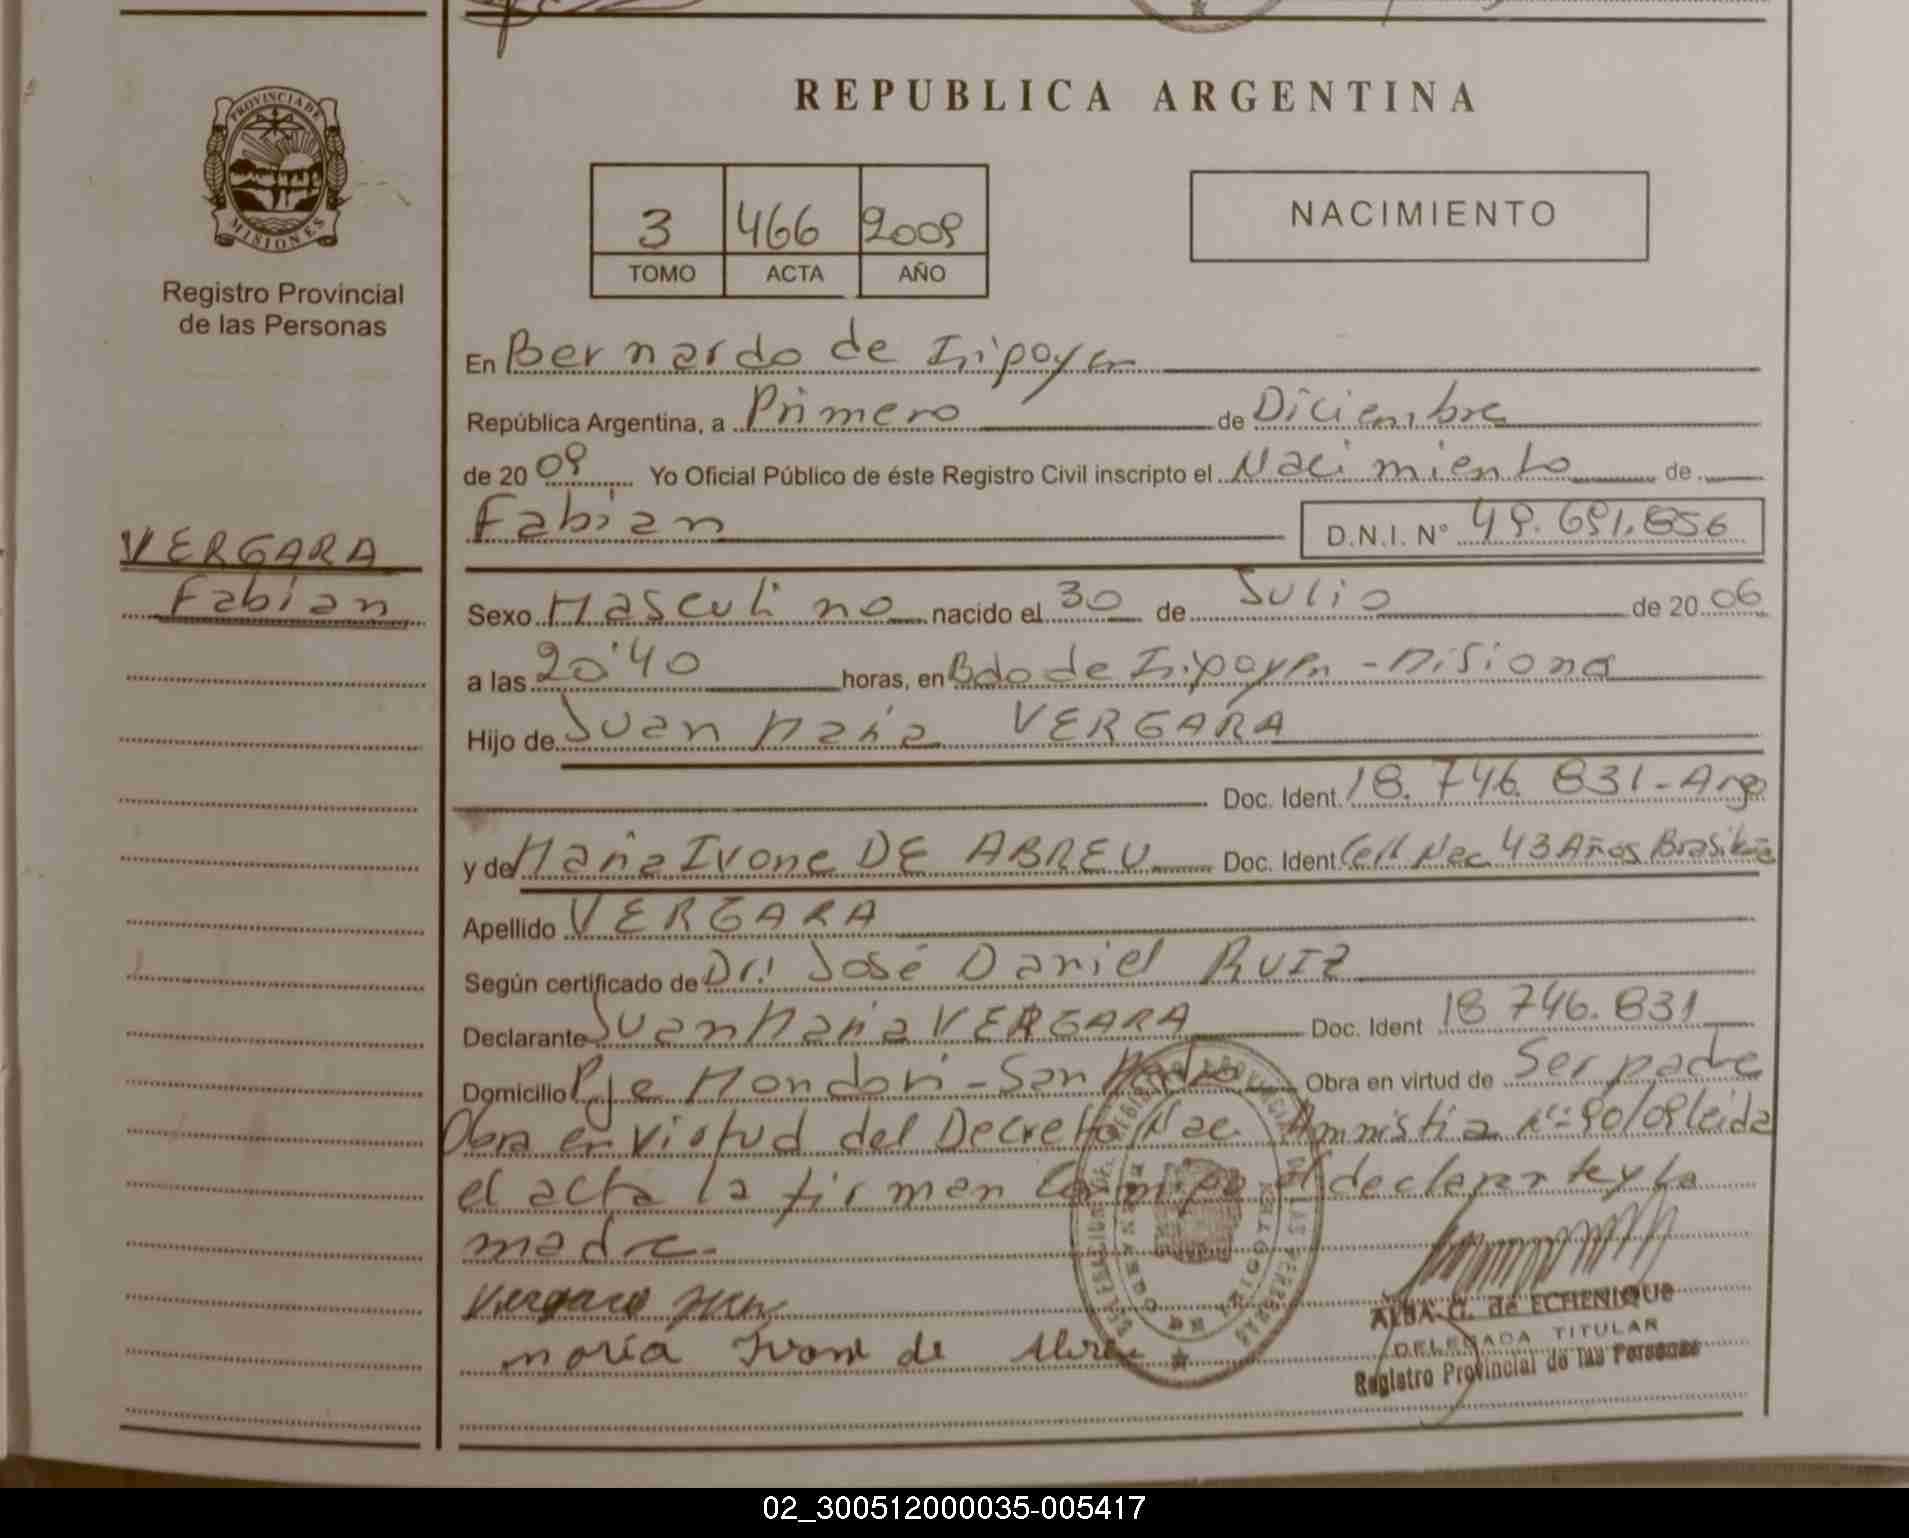 REPUBLICA ARGENTINA
PROVINCIA DE
MISIONES
Registro Provincial
de las Personas
3 466 2009
TOMO ACTA AÑO
NACIMIENTO
En Bernardo de Irigoyen
República Argentina, a Primero de Diciembre
de 20 09 Yo Oficial Público de éste Registro Civil inscripto el Nacimiento de
Fabian D.N.I. N° 49.691.856
VERGARA
Fabian
Sexo Masculino nacido el 30 de Julio de 20 06
a las 20:40 horas, en Bdo de Irigoyen - Misiones
Hijo de Juan Maria VERGARA
Doc. Ident. 18.746.831 - Arg
y de Maria Ivone DE ABREU Doc. Ident Cert Nac 43 Años Brasileña
Apellido VERGARA
Según certificado de Dr: José Daniel RUIZ
Declarante Juan Maria VERGARA Doc. Ident 18 746.831
Domicilio Pje Mondori - San Pedro Obra en virtud de Ser padre
Obra en virtud del Decreto Nac. Amnistia N°= 90/09 leida
el acta la firman Conmigo el declarante y la
madre.
Vergara Juan
maría Ivone de Abreu
ALBA G. de ECHENIQUE
DELEGADA TITULAR
Registro Provincial de las Personas
02_300512000035-005417